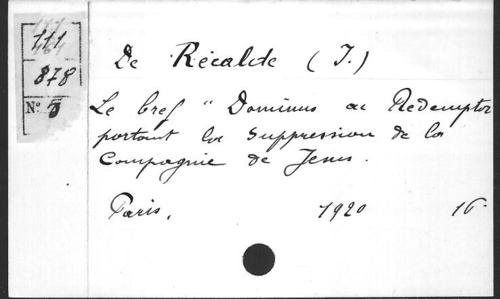 111
878
N° 5
De Récalde (I.)
Le bref " Dominus ac Redemptor
portant la Suppression de la
Compagnie de Jesus.
Paris, 1920 16°